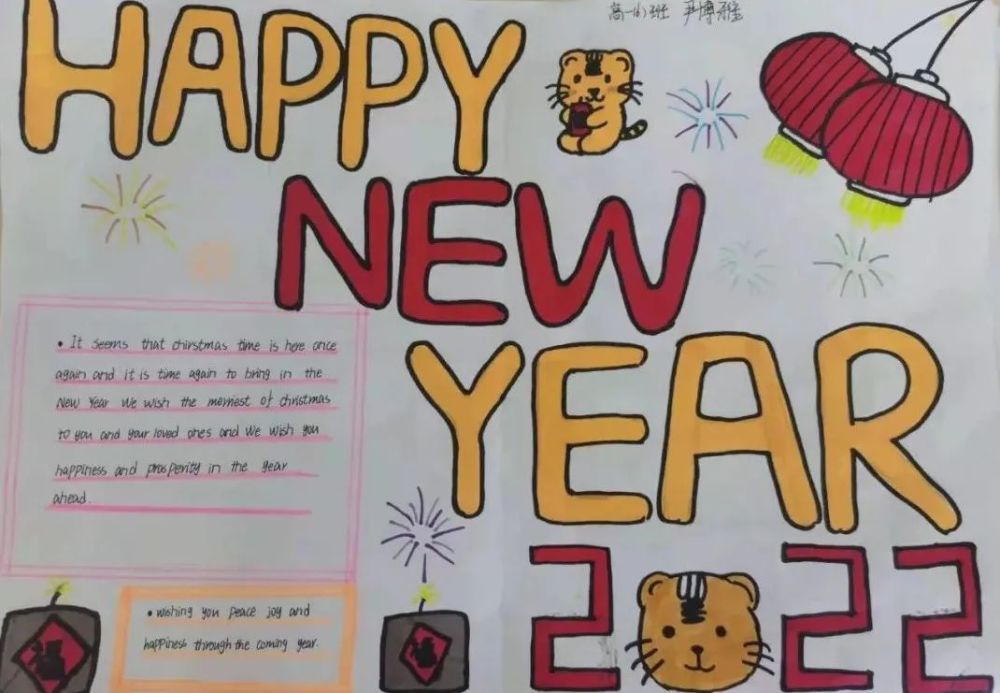 高一 班 尹博雅
HAPPY
NEW
YEAR
2 22
• It seems that chirstmas time is here once
again and it is time again to bring in the
New Year We wish the merriest of christmas
to you and your loved ones and We wish you
happiness and prosperity in the year
ahead.
• wishing you peace joy and
happiness through the coming year.